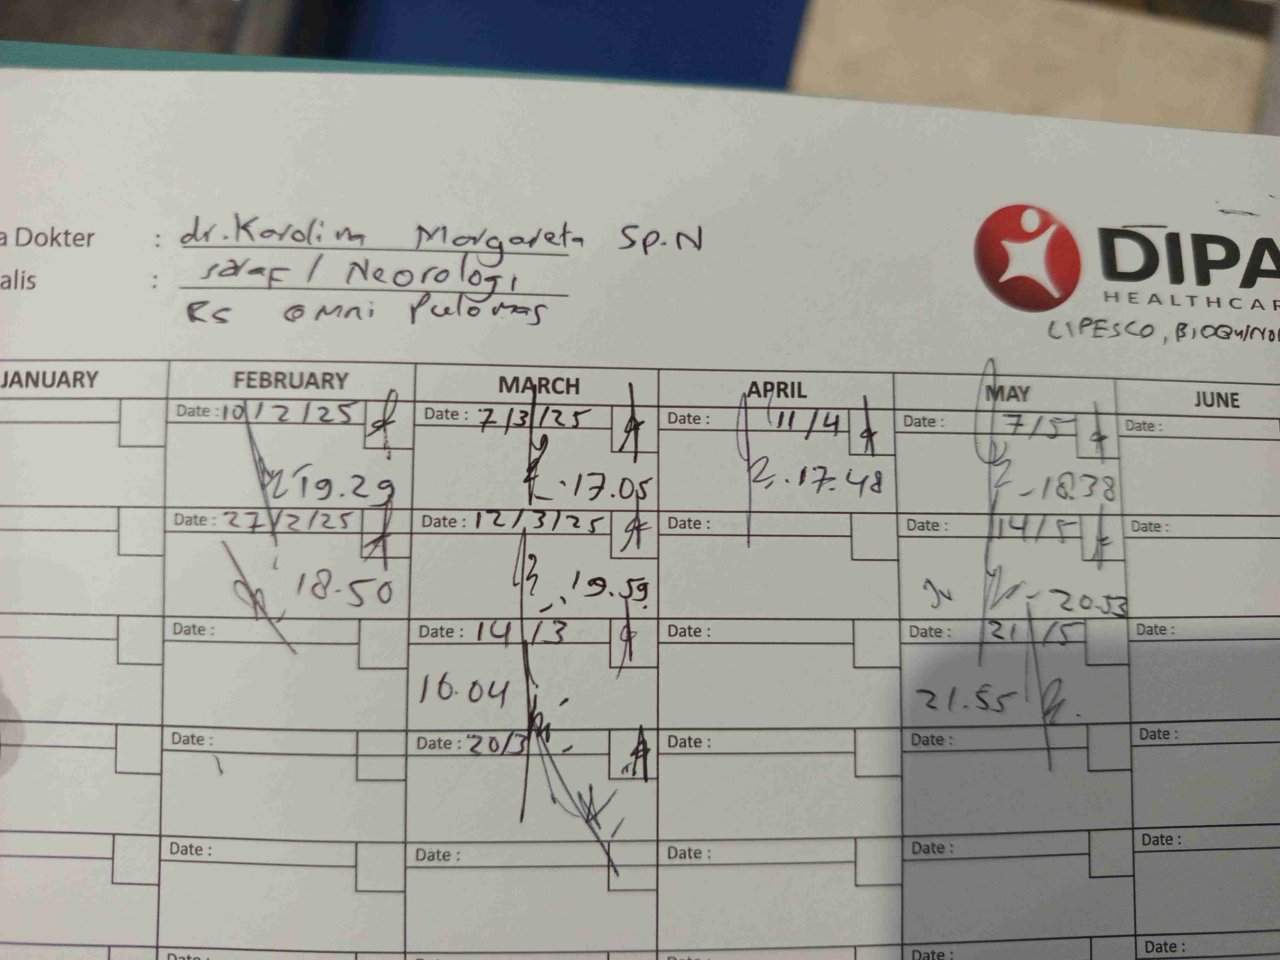 a Dokter : dr. Karolim Margareta Sp.N
alis : saraf / Neorologi
RS omni Pulomas
DIPA
HEALTHCAR
LIPESCO,
JANUARY FEBRUARY MARCH APRIL MAY JUNE
Date : 10/2/25 Date : 7/3/25 Date : 11/4 Date : 7/5 Date :
19.29 17.05 17.48 18.38
Date : 27/2/25 Date : 12/3/25 Date : Date : 14/5 Date :
18.50 19.59 20.53
Date : Date : 14/3 Date : Date : 21/5 Date :
16.04 21.55
Date : Date : 20/3 Date : Date : Date :
Date : Date : Date : Date : Date :
Date :